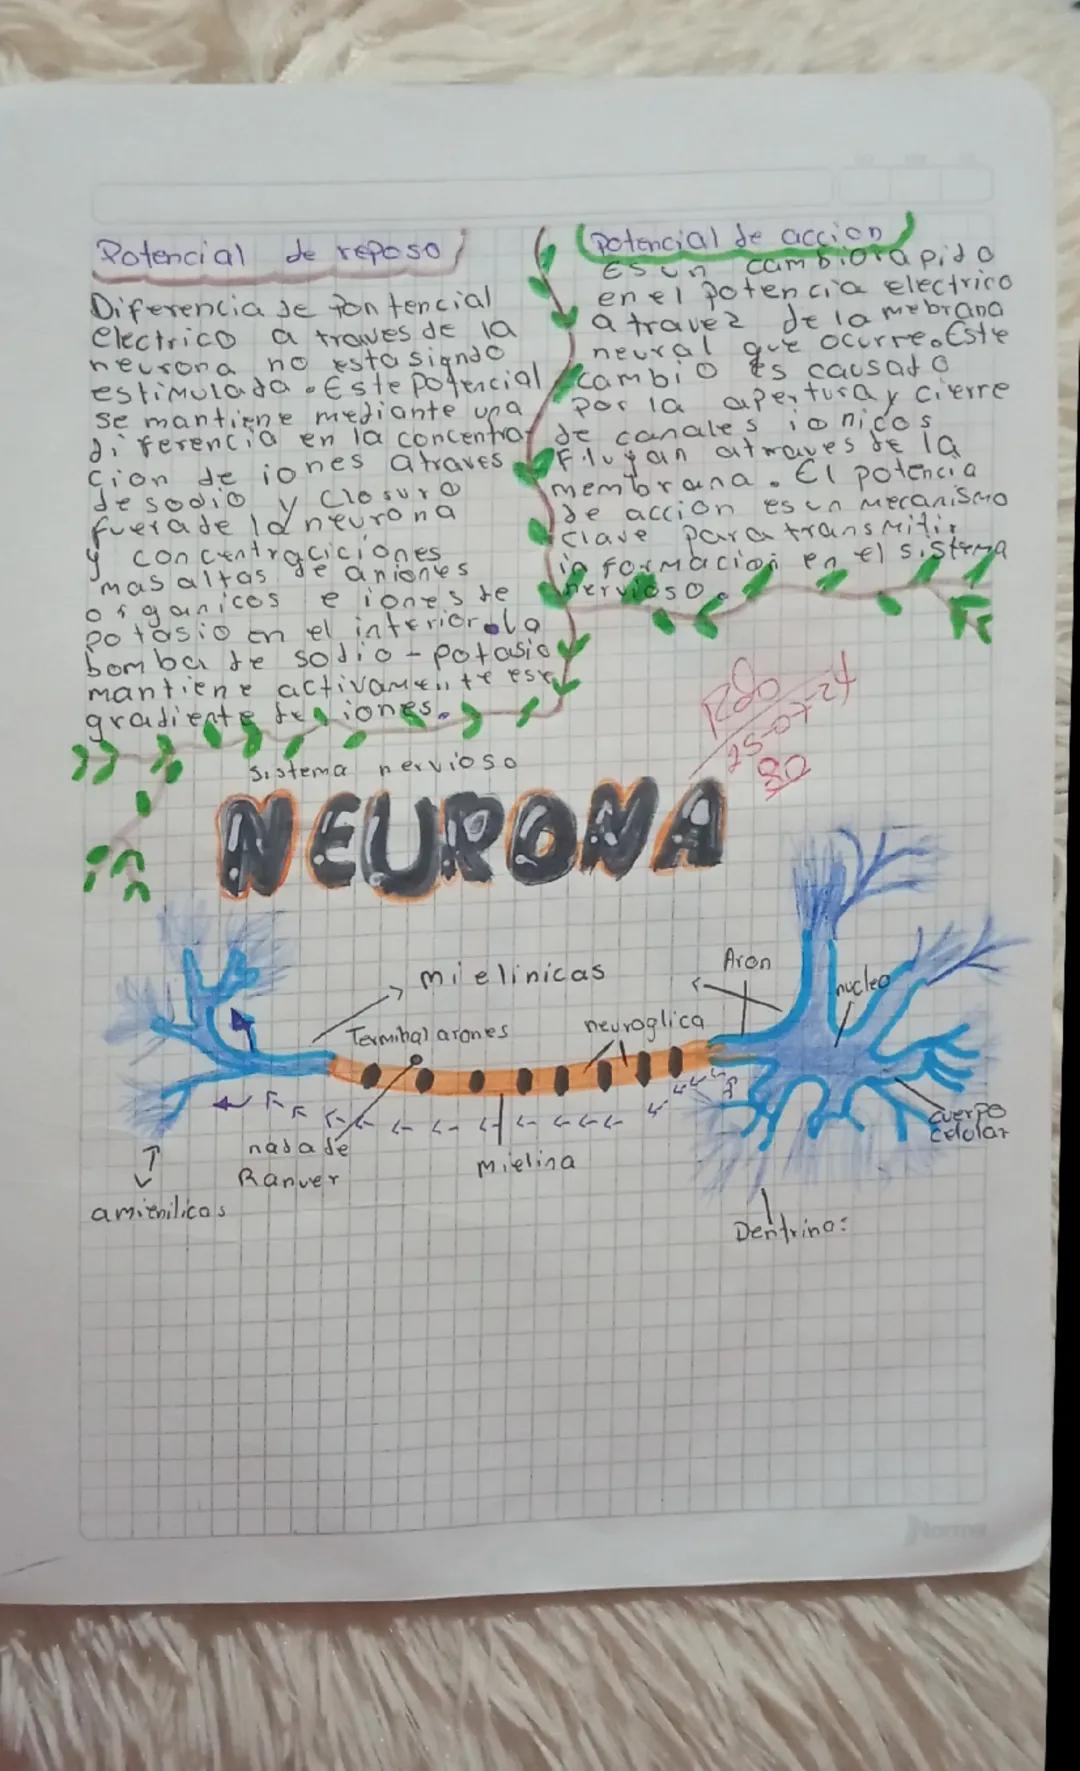 Potencial de reposo
Diferencia de Pontencial
electrico a traves de la
neurona no esta siendo
estimulada. Este potencial
se mantiene mediante una
diferencia en la concentra
cion de iones atraves
de sodio y closuro
fuera de la neurona
y concentraciciones
mas altas de aniones
organicos e iones de
potasio en el interior. la
bomba de sodio - potasio
mantiene activamente ese
gradiente de iones.
potencial de accion
Es un cambio rapido
en el potencia electrico
a travez de la mebrana
neural que ocurre. Este
cambio es causado
por la apertura y cierre
de canales ionicos
Fluyan atraves de la
membrana. El potencia
de accion es un mecanismo
clave para transmitir
informacion en el sistema
nervioso.
25-07-24
80
sistema nervioso
NEURONA
mielinicas
Axon
nucleo
Terminal axones
neuroglica
cuerpo
celolar
nada de
Ranver
mielina
amienilicas
Dentrina:
Norma